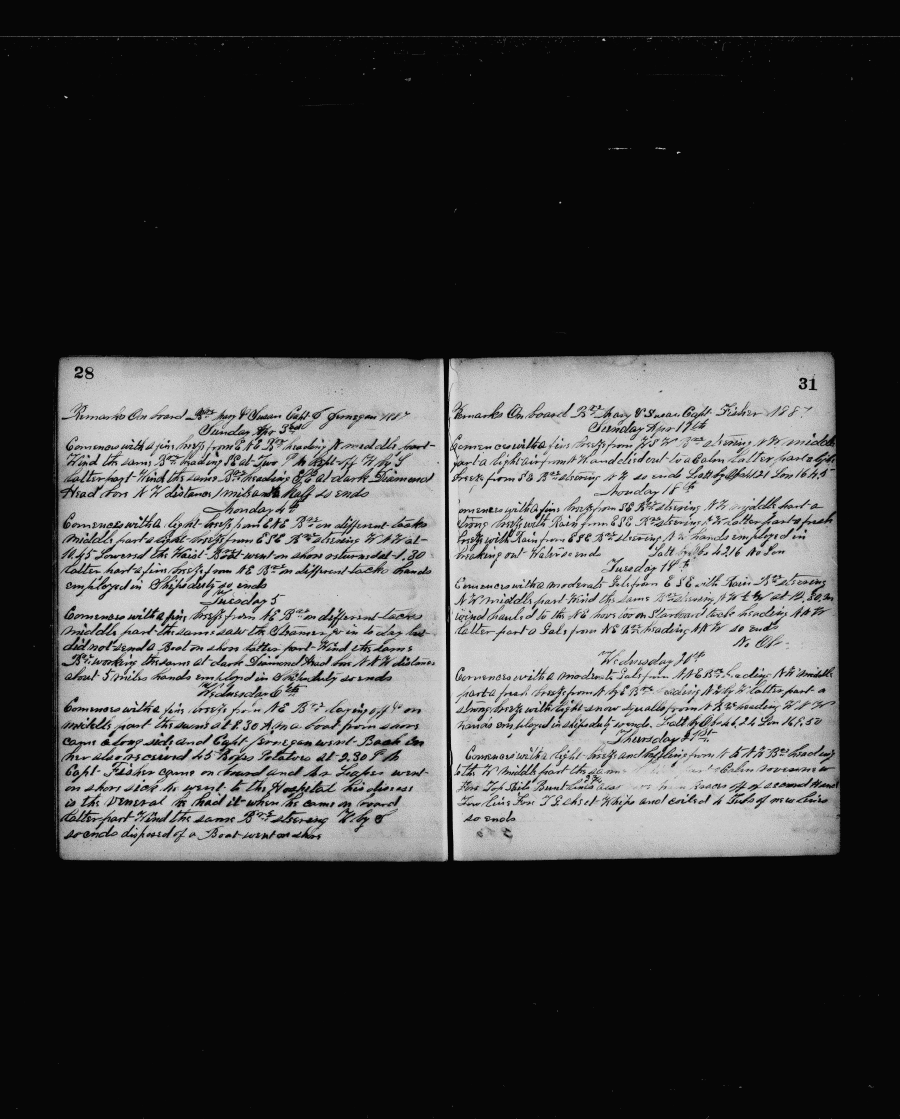 28
Remarks On board Bark Mary & Susan Capt J Jernegan 1887
Sunday Apr 3rd
Comences with a fine breeze from E N E Bark heading N middle part
Wind the same Bark heading SE at Two P M kept off W by S
latter part Wind the same Bark heading at dark Diamond
Head bore N W distance 1 mile and half so ends
Monday 4th
Comences with a light breeze from E N E Bark on different tacks
middle part a light breeze from E S E Bark steering W N W at
10.45 Lowered the Waist Boat went on shore returned at 1.30
latter part a fine breeze from N E Bark on different tacks hands
employed in Ships duty so ends
Tuesday 5
Comences with a fine breeze from N E Bark on different tacks
middle part the same saw the Steamer go in to day but
did not send a Boat on shore latter part Wind the same
Bark working the same at dark Diamond Head bore N N W distance
about 5 miles hands employed in Ships duty so ends
Wednesday 6th
Comences with a fine breeze from N E Bark laying off & on
middle part the same at 8.30 A.m a boat from shore
came along side and Capt Jernegan went Back in
her also received 45 Potatoes at 2.30 P M
Capt Fisher came on board and Mr went
on shore sick he went to the Hospital his
is the Veneral he had it when he came on board
latter part Wind the same Bark steering W by S
so ends disposed of a Boat went on shore
31
Remarks On board Bark Mary & Susan Capt Fisher 1887
Sunday Apr 17th
Comences with a fine breeze from W S W Bark steering N W middle
part a light air from N W and died out to a Calm latter part a light
breeze from S E Bark steering N W so ends Latt by Obs 41.21 Lon 164.45
Monday 18th
omences with a fine breeze from S E Bark steering N W middle part a
strong breeze with Rain from E S E Bark steering N W latter part a fresh
breeze with Rain from E S E Bark steering N W hands employed in
breaking out Water so ends Latt by Obs 42.16 No Lon
Tuesday 18th
Comences with a moderate Gale from E S E with Rain Bark steering
N W middle part Wind the same Bark steering N W at 12.30
wind hauled to the N E wore Ship on Starboard tack heading N N W
latter part a Gale from N E Bark heading N N W so ends
No Obs
Wednesday
Comences with a moderate Gale from N E Bark heading N W middle
part a fresh breeze from N by E Bark heading latter part a
strong breeze with light snow squalls from N Bark heading W N W
hands employed in ships duty so ends Latt by Obs Lon 168.50
Thursday 21st
Comences with a light breeze and baffling from N to N W Bark heading
to the W middle part the same
Fore Top Sails Bunt Lines of second Hand
Tow line Fore T and Whips and coiled 4 Tubs of new line
so ends